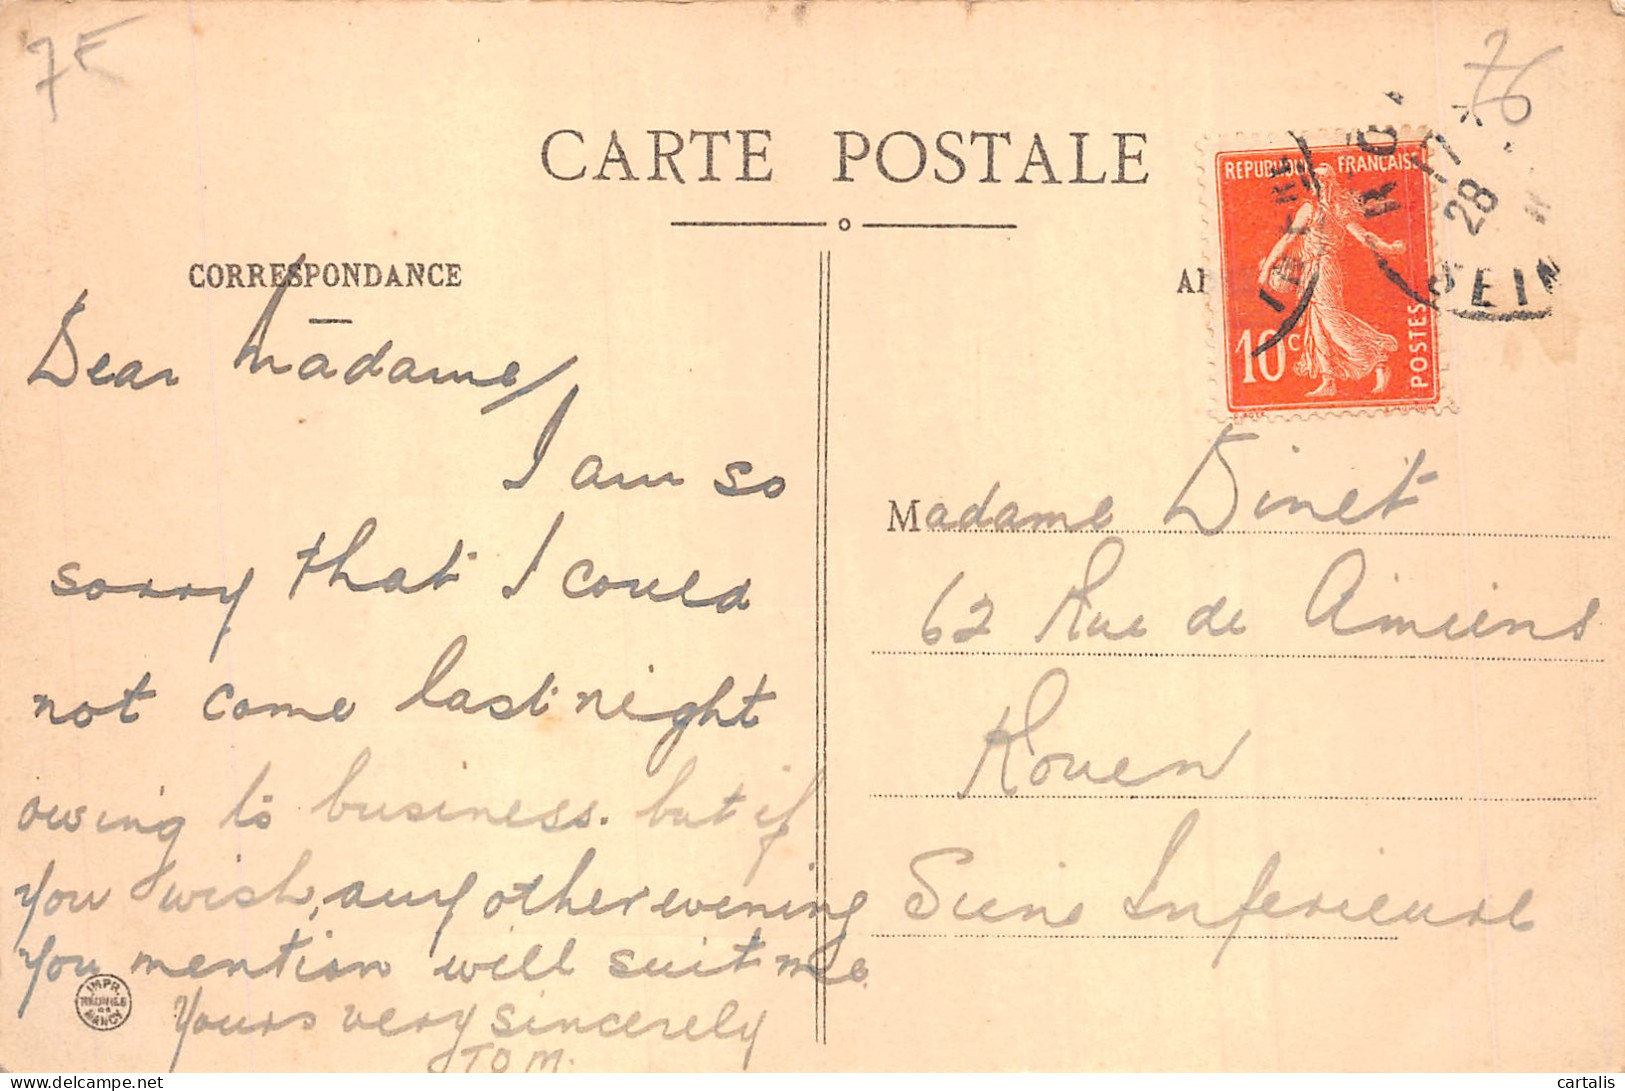 7E
76
CARTE POSTALE
CORRESPONDANCE
REPUBLIQUE FRANÇAISE
10c
POSTES
28
SEIN
Dear Madame,
I am so
sorry that I could
not come last night
owing to business. but if
you wish, any other evening
you mention will suit me
Yours very sincerely
TOM.
Madame Dinet
62 Rue de Amiens
Rouen
Seine Inferieure
IMPR.
REUNIES
DE
NANCY
delcampe.net
cartalis